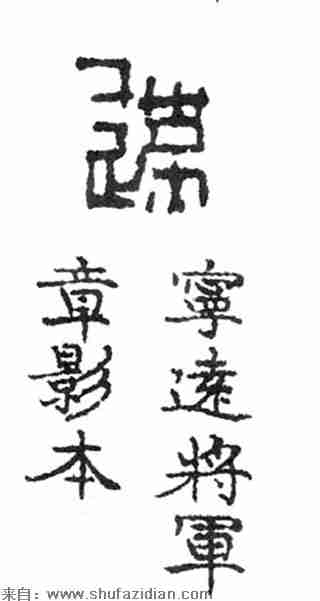 遠
寧遠將軍
章影本
来自：www.shufazidian.com